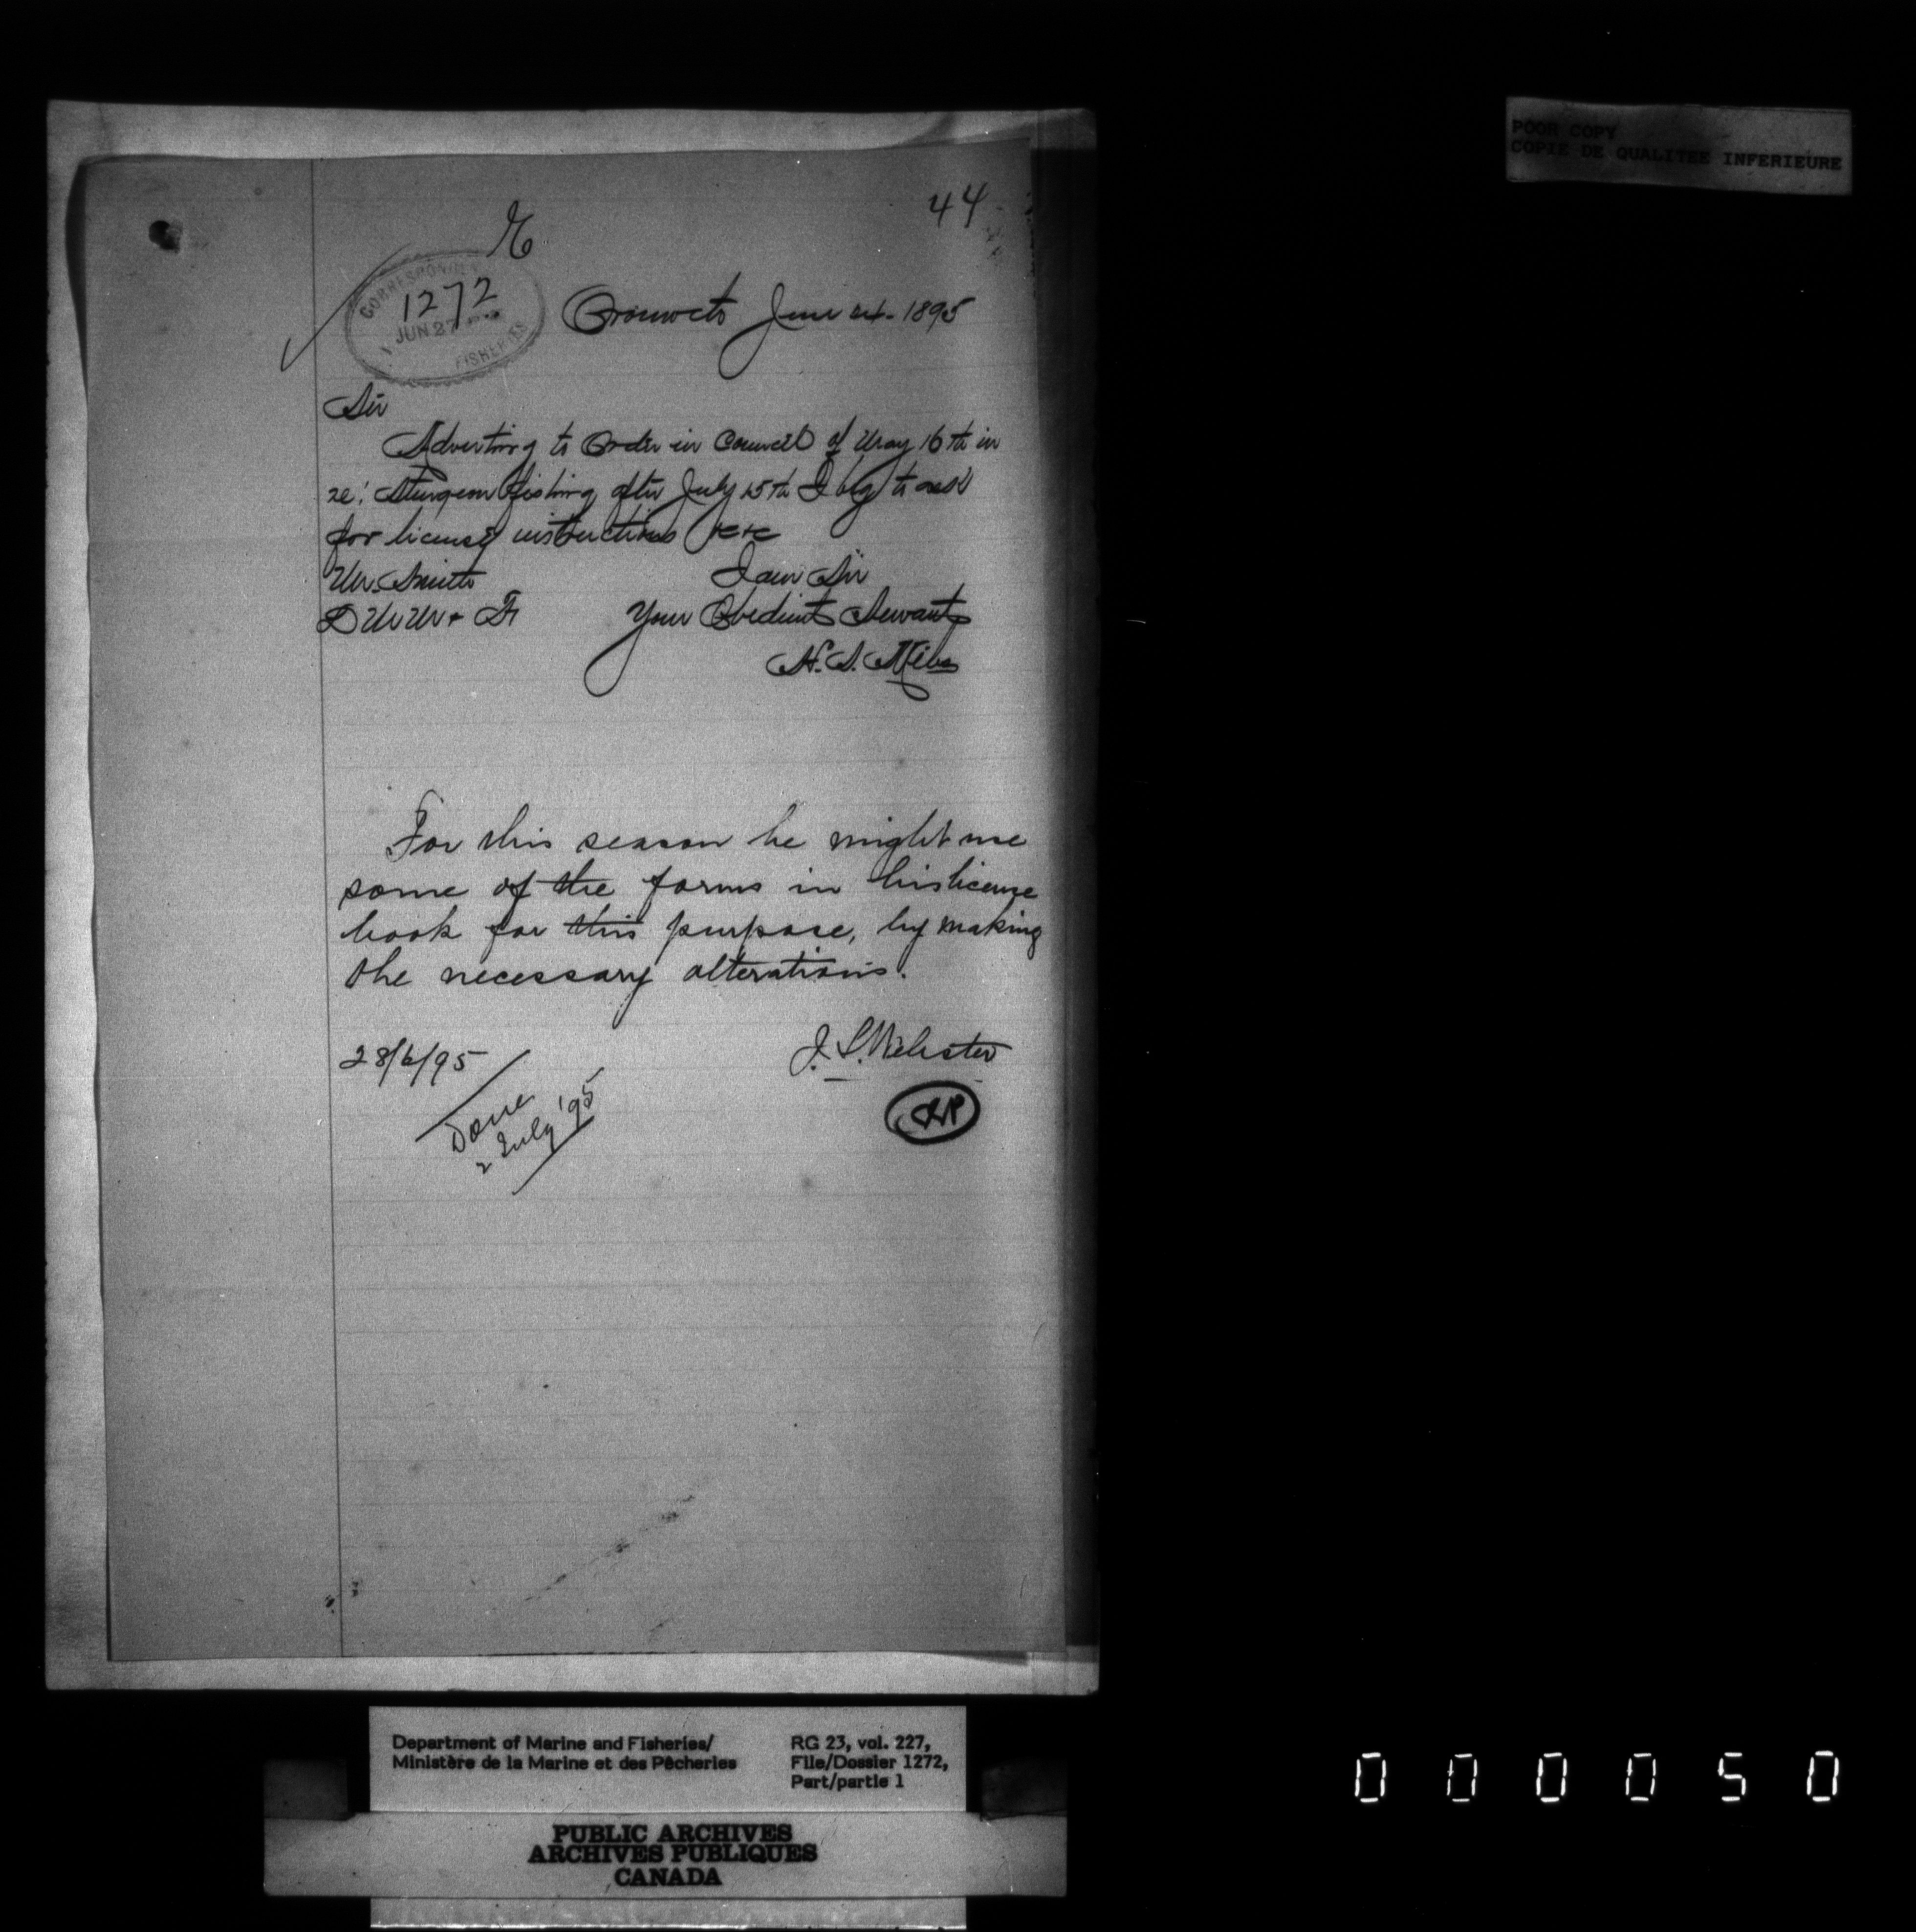 POOR COPY
COPIE DE QUALITEE INFERIEURE
44
CORRESPONDENCE
1272
JUN 27
FISHERIES
Oromocto June 24. 1895
Sir
Adverting to Order in Council of May 16th in
re: Sturgeon fishing after July 15th I beg to ask
for licenses instructions etc
Mr. Smith
D M M & F
I am Sir
Your Obedient Servant
H. S. Miles
For this season he might use
some of the forms in his license
book for this purpose, by making
the necessary alterations.
28/6/95
J. S. Webster
Done
2 July '95
Department of Marine and Fisheries/
Ministère de la Marine et des Pêcheries
RG 23, vol. 227,
File/Dossier 1272,
Part/partie 1
PUBLIC ARCHIVES
ARCHIVES PUBLIQUES
CANADA
000050